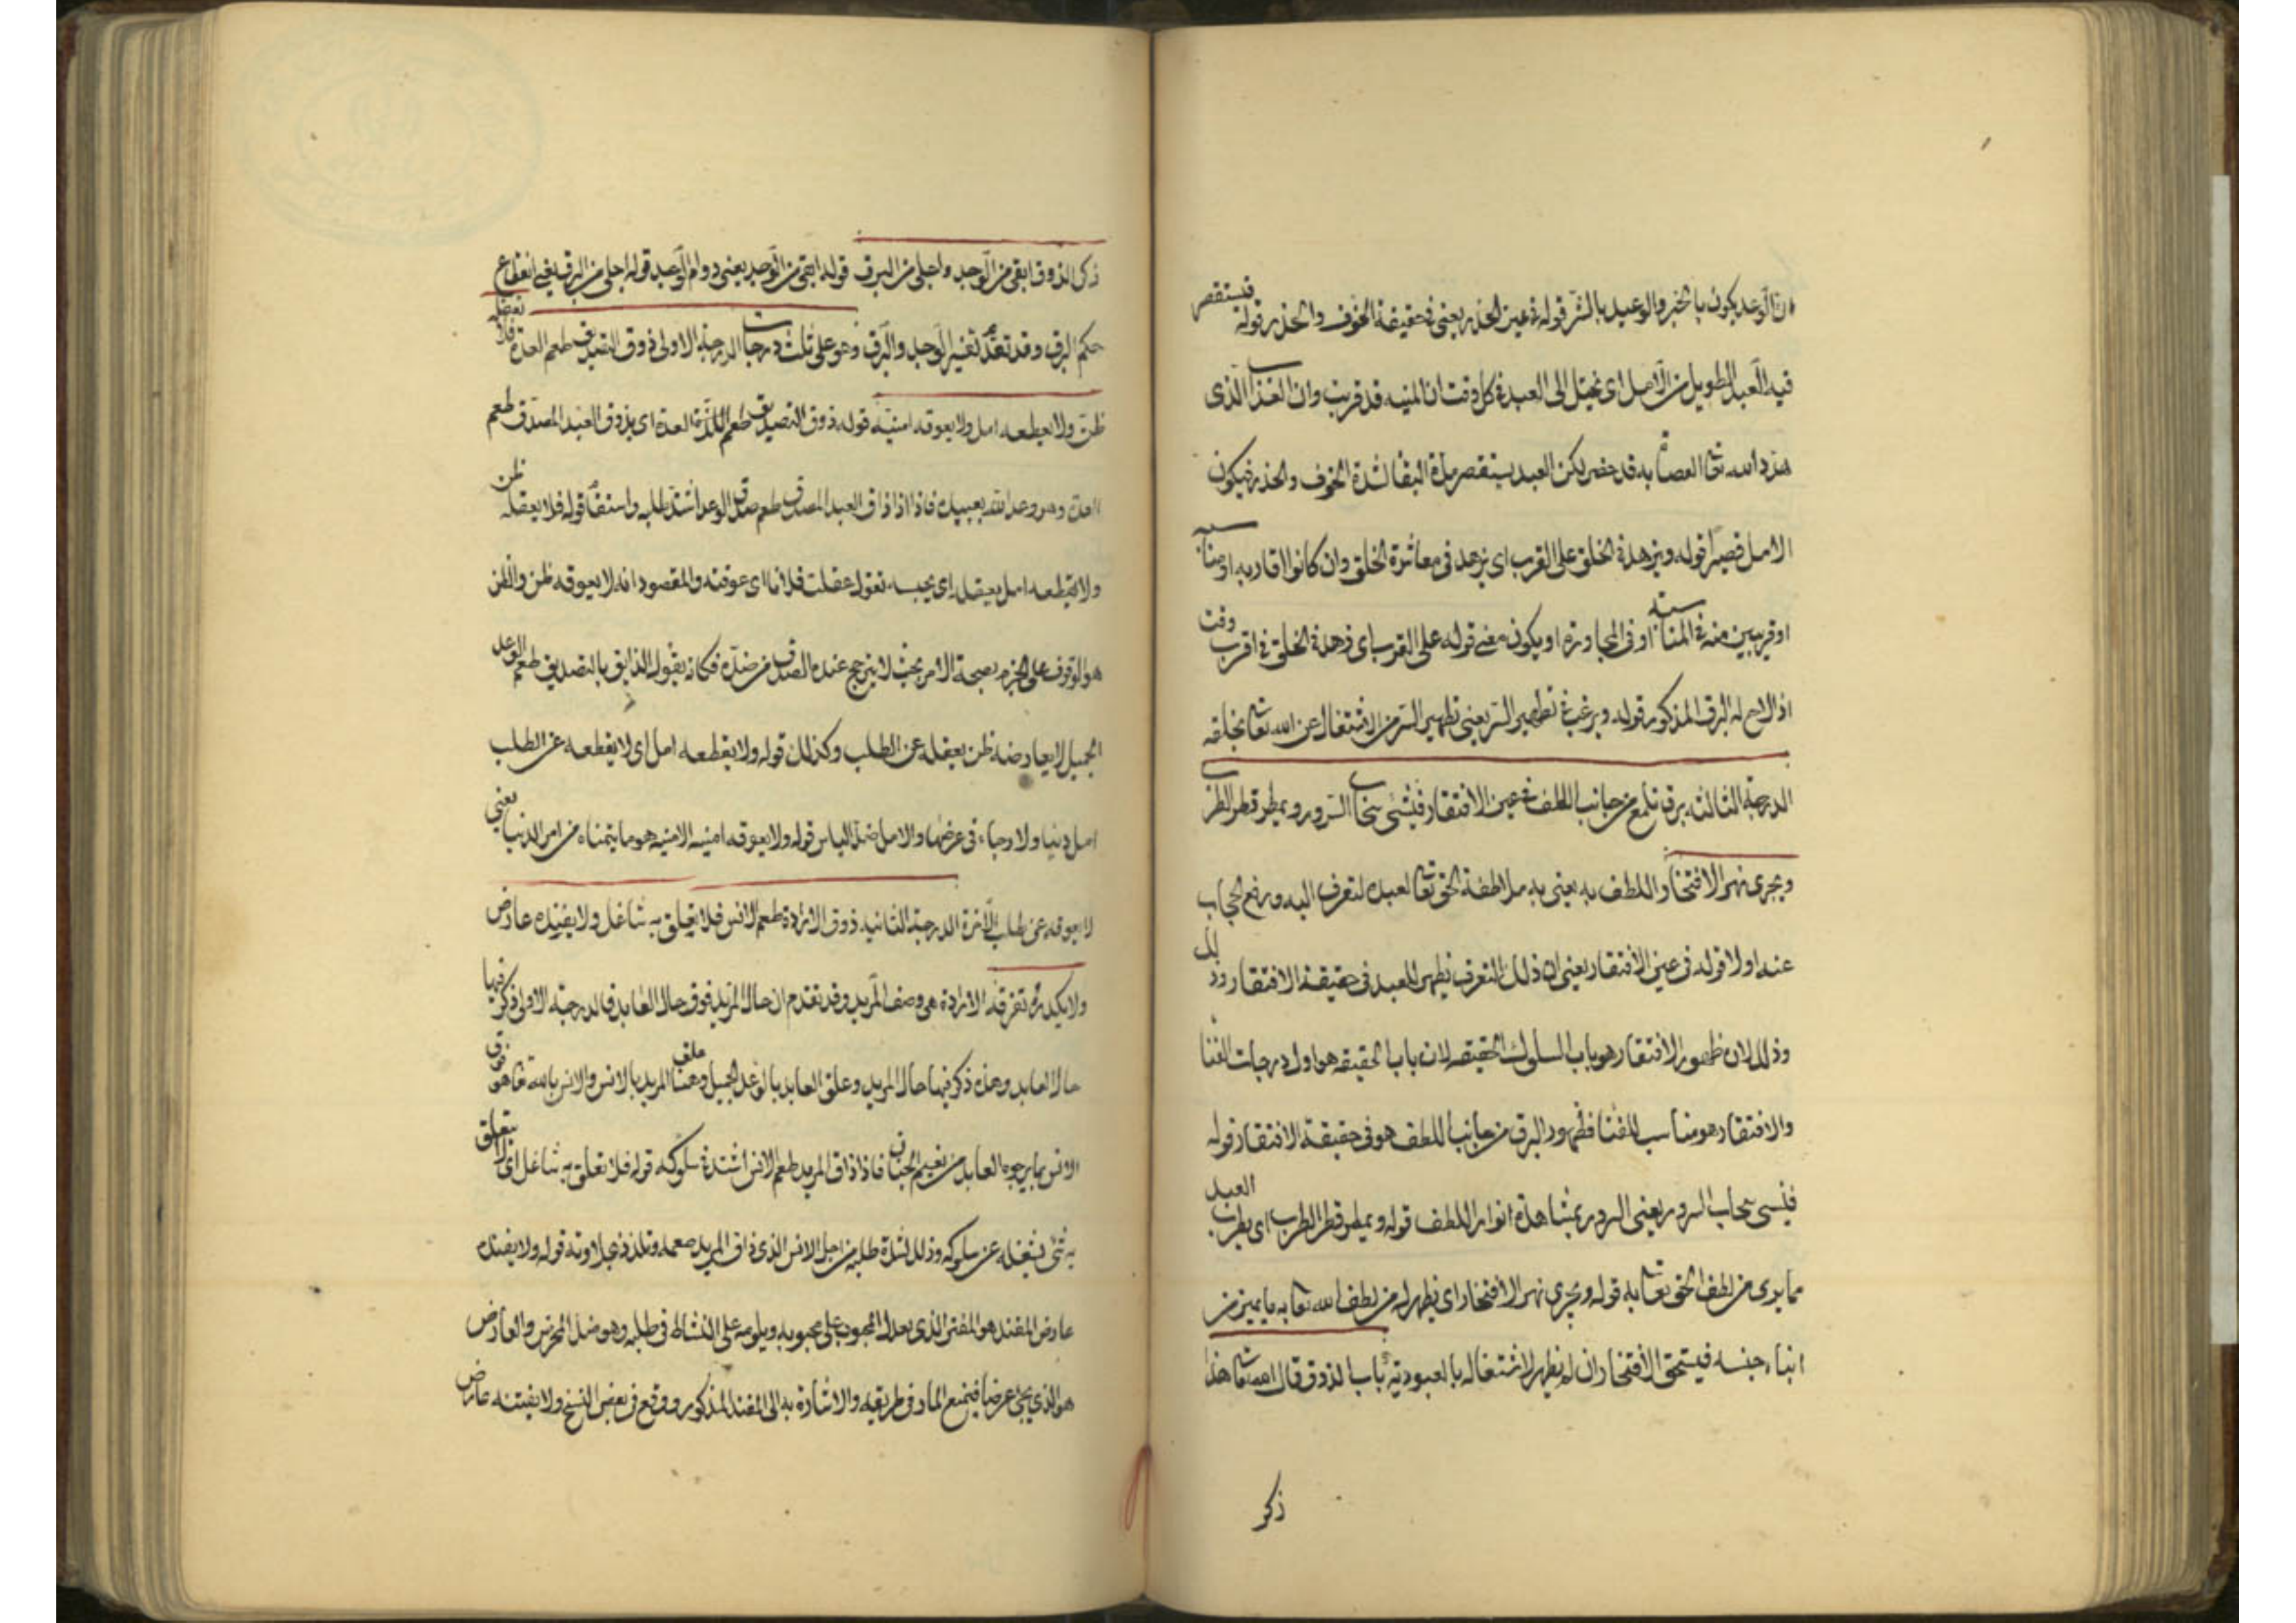 ان الوعد يكون بالخير والوعيد بالشر قوله في عين الحذر يعني في حقيقة الخوف والحذر قوله فيستقصر
فيه العبد الطويل من الامل اى يخيل الى العبد في كل وقت ان المنيه قد قربت وان العذاب الذى
هدد الله تعا العصاة به قد حضر لكن العبد يستقصر مدة البقا لشدة الخوف والحذر فيكون
الامل قصيرا قوله ويزهد في الخلق على القرب اى يزهد في معاشرة الخلق وان كانوا اقاربه او مناسبة
او قريبين منه في المناسبة او في المجاورة او يكون معنى قوله على القرب اى زهد في الخلق في اقرب وقت
اذا لاح له البرق المذكور قوله ويرغب في تطهير السر يعني تطهير السر من الاشتغال عن الله تعا بخلقه
الدرجة الثالثه برق يلمع من جانب اللطف في عين الافتقار فينشى سحاب السرور ويمطر قطر الطرب
ويجرى نهر الافتخار واللطف به يعنى به ملاطفة الحق تعا لعبده لتعرف اليه ورفع الحجاب
عنه اولا قوله فى عين الافتقار يعنى ان ذلك التعرف يظهر للعبد فى حقيقة الافتقار
وذلك لان ظهور الافتقار هو باب السلوك الحقيقه لان باب الحقيقه هو اول درجات الفنا
والافتقار هو مناسب للفنا فظهور البرق من جانب اللطف هو فى حقيقة الافتقار قوله
فينسى سحاب السرور يعنى السرور بمشاهدة انوار اللطف قوله ويمطر قطر الطرب اى يطرب العبد
مما يرى من لطف الحق تعا به قوله ويجرى نهر الافتخار اى يظهر له من لطف الله تعا به ما يميز من
ابناء جنسه فيستحق الافتخار ان لم يظهر لاشتغاله بالعبودية باب الذوق قال الله تعا هذا
ذكر
ذكر الذوق ابقى من الوجد واجلى من البرق قوله ابقى من الوجد يعنى دوام الوجد قوله اجلى من البرق انقطاع
حكم البرق وقد تقدم تفسير الوجد والبرق وهو على ثلث درجات الدرجة الاولى ذوق التصديق طعم العدة فلا تعقله
ظن ولا يقطعه امل ولا يعوقه امنيه قوله ذوق التصديق طعم العدة اى يذوق العبد المصدق طعم
العدة وهو وعد الله بعبيده فاذا ذاق العبد المصدق طعم صدق الوعد اشتد طلبه واستقا قوله فلا يعقله ظن
ولا يقطعه امل يعقله اى يحبسه تقول عقلت فلانا اى عوقته والمقصود انه لا يعوقه ظن والظن
هو الوقوف على الجزم بصحة الامر بحيث لا يترجح عنده الصدق من ضده فكانه يقول الذايق بالتصديق طعم الوعد
الجميل لا يعارضه ظن يعقله عن الطلب وكذلك قوله ولا يقطعه امل اى لا يقطعه عن الطلب
امل دنيا ولا رجاء فى عرضها والامل ضد الياس قوله ولا يعوقه امنيه الامنيه هو ما يتمناه من امر الدنيا يعنى
لا يعوقه عن طلب الآخرة الدرجة الثانيه ذوق الارادة طعم الانس فلا يتعلق به شاغل ولا يفنده عارض
ولا يكدره تفرقه الارادة هى وصف المريد وقد تقدم ان حال المريد فوق حال العابد فالدرجة الاولى ذكر فيها
حال العابد وهذه ذكر فيها حال المريد وعلق العابد بالوعد الجميل وهنا علق المريد بالانس والانس بالله تعا هو فوق
الانس بما يرجوه العابد من نعيم الجنان فاذا ذاق المريد طعم الانس اشتد في سلوكه قوله فلا تعلق به شاغل اى لا يتعلق
به شئ يشغله عن سلوكه وذلك لشدة طلبه من اجل الانس الذى ذاق المريد طعمه وتلذذ بحلاوته قوله ولا يفنده
عارض المفند هو المفتر الذى يعذل المحبوب على محبوبه ويلومه على النشاط فى طلبه وهو ضد المحرض والعارض
هو الذى يجئ عرضا فيمنع المار فى طريقه والاشارة به الى المفند المذكور ووقع فى بعض النسخ ولا يفتنه عارض